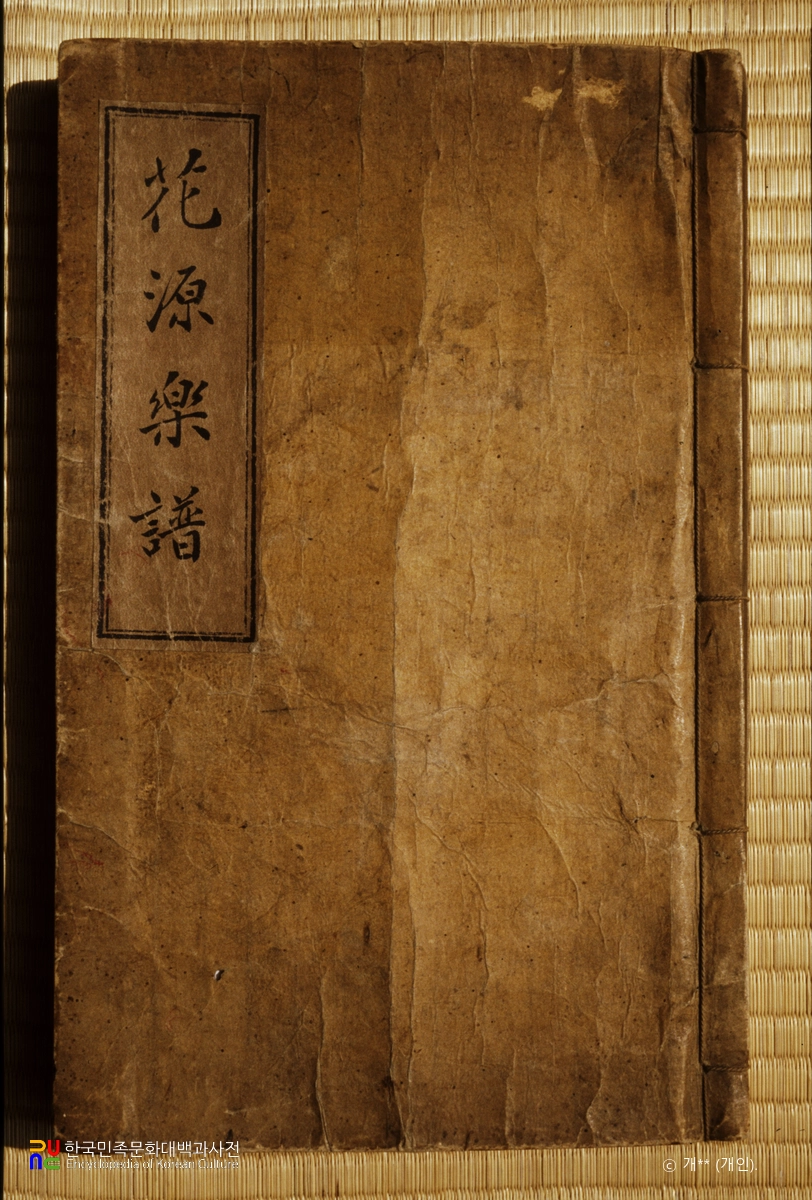 花源樂譜
한국민족문화대백과사전
Encyclopedia of Korean Culture
ⓒ 개** (개인).